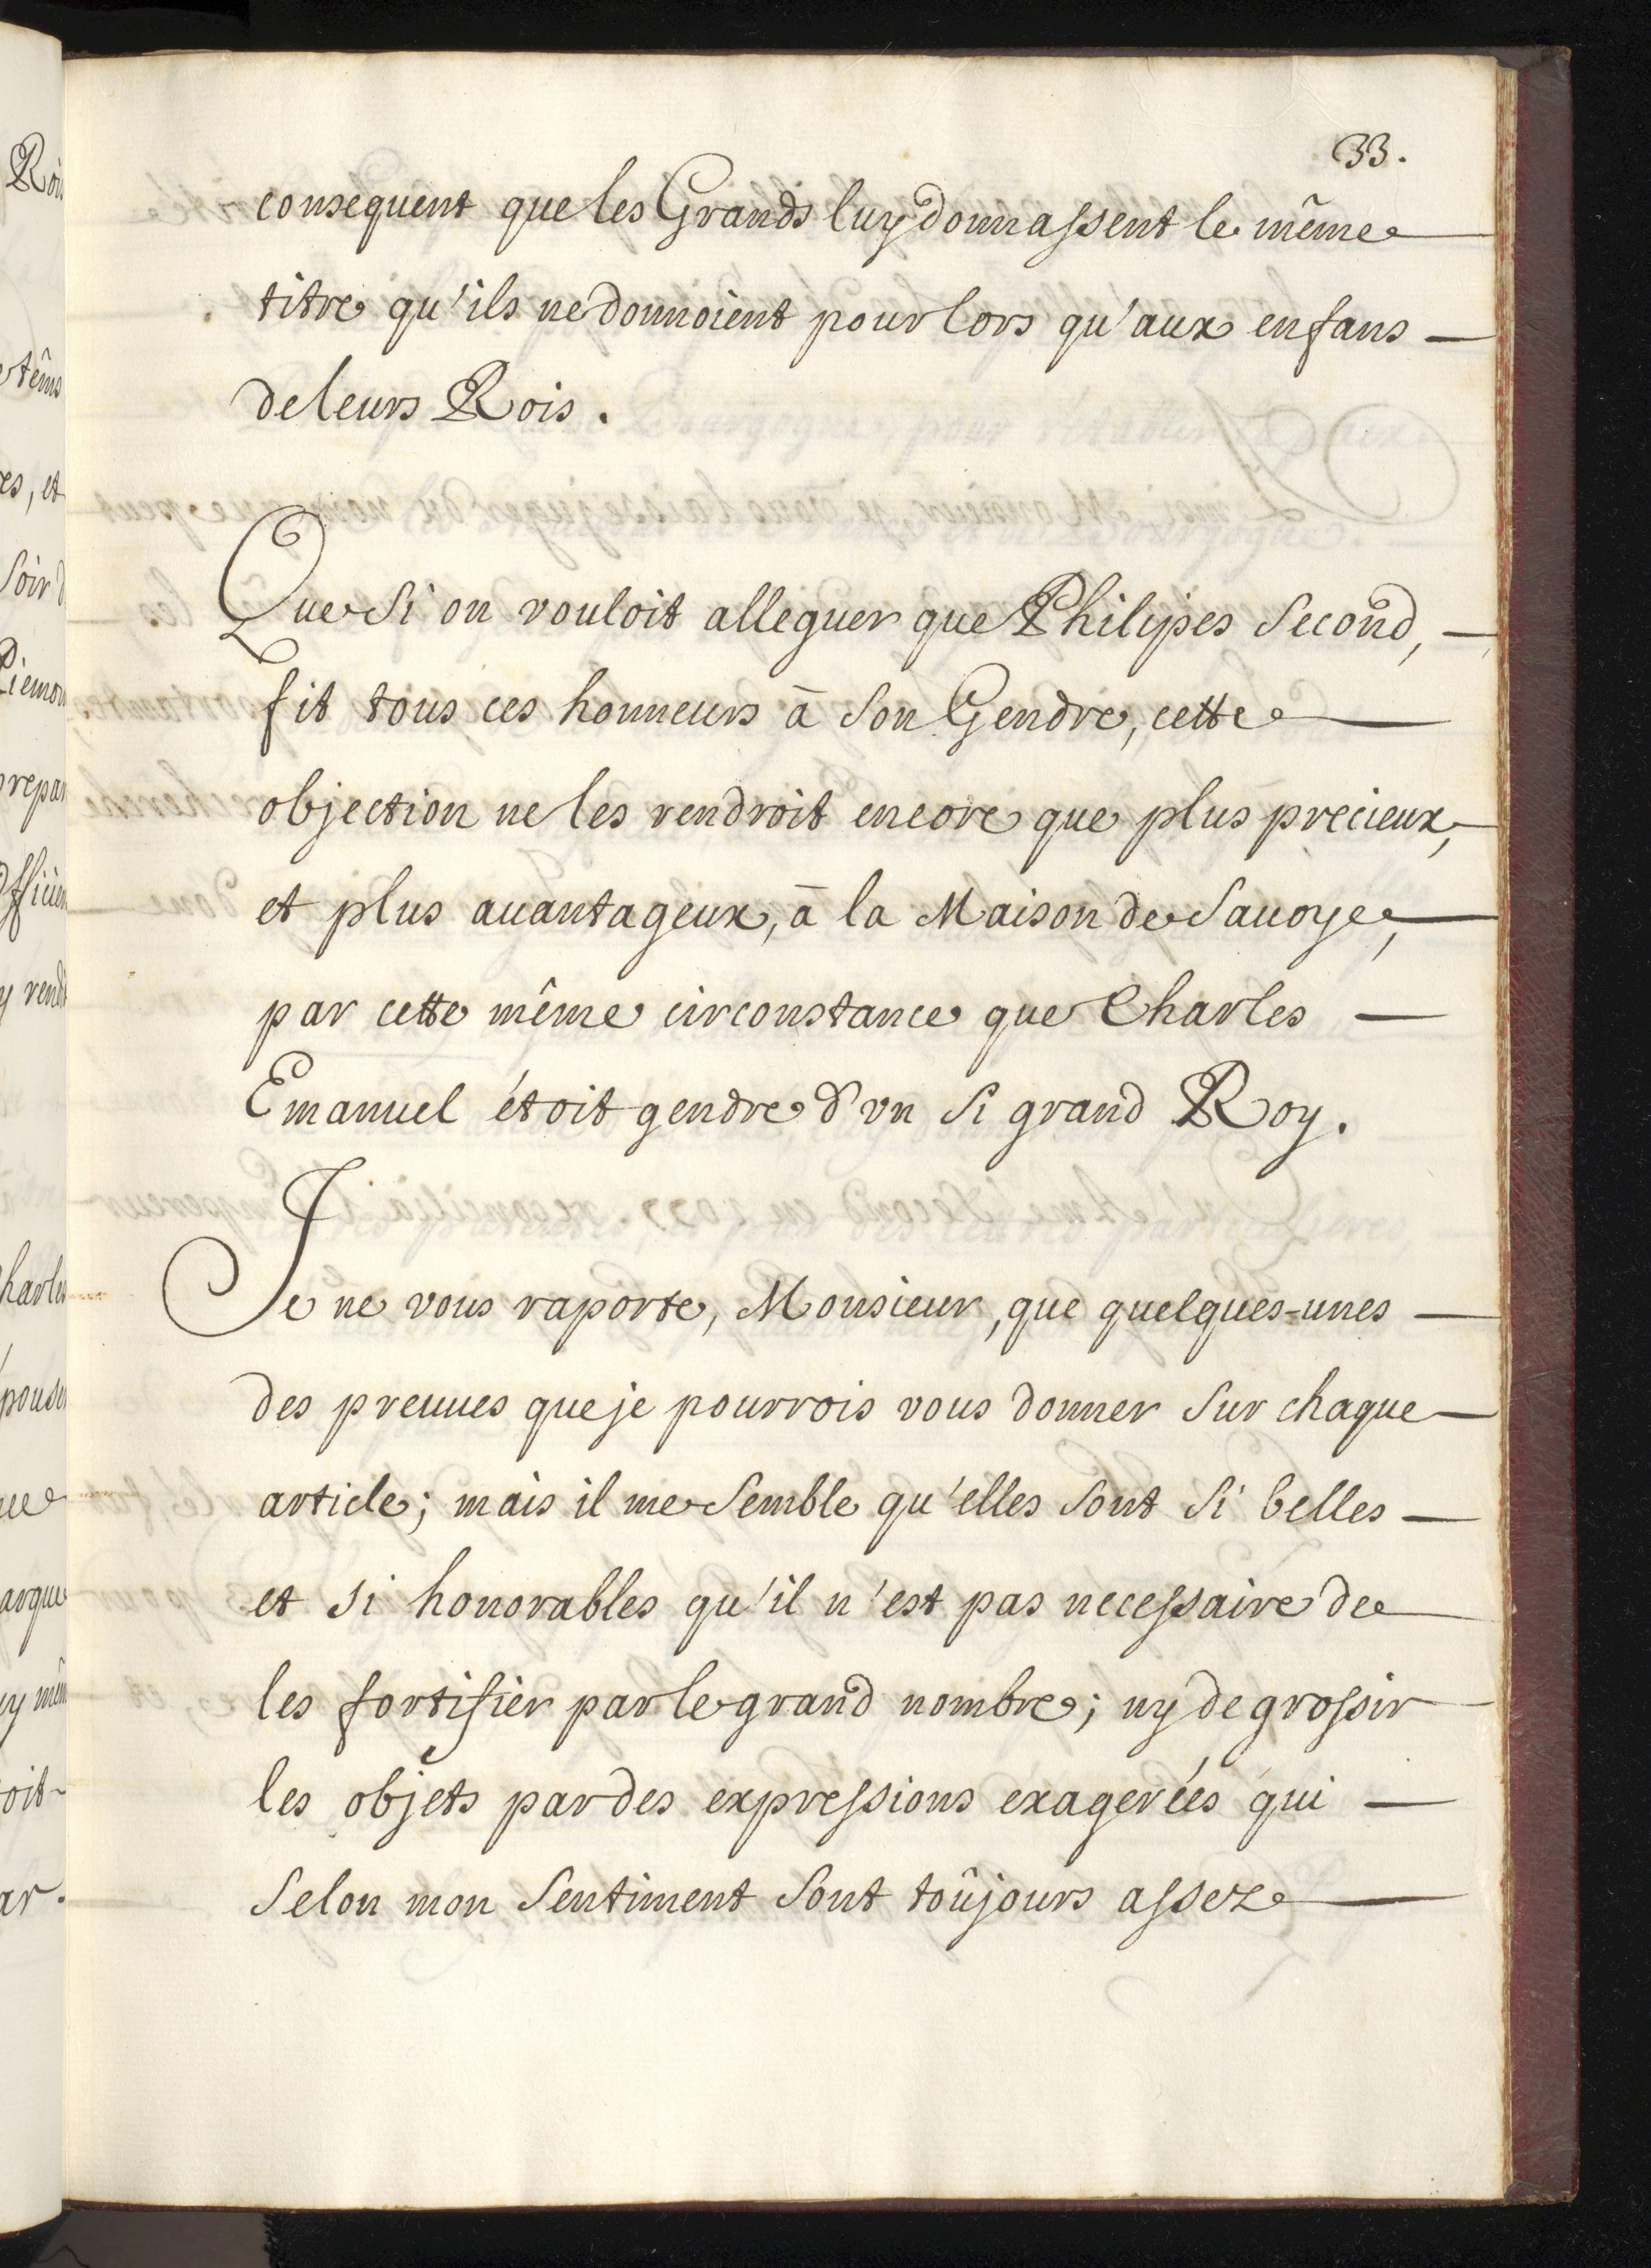 33.
consequent que les Grands luy donnassent le même
titre qu'ils ne donnoient pour lors qu'aux enfans —
de leurs Rois.
Que si on vouloit alleguer que Philipes second, —
fit tous ces honneurs à son Gendre, cette
objection ne les rendroit encore que plus precieux,
et plus auantageux, à la Maison de Sauoye,
par cette même circonstance que Charles —
Emanuel étoit gendre d'vn si grand Roy.
Je ne vous raporte, Monsieur, que quelques-unes —
des preuues que je pourrois vous donner sur chaque —
article; mais il me semble qu'elles sont si belles —
et si honorables qu'il n'est pas necessaire de
les fortifier par le grand nombre; ny de grossir
les objets par des expressions exagerées qui —
selon mon sentiment sont toûjours assez